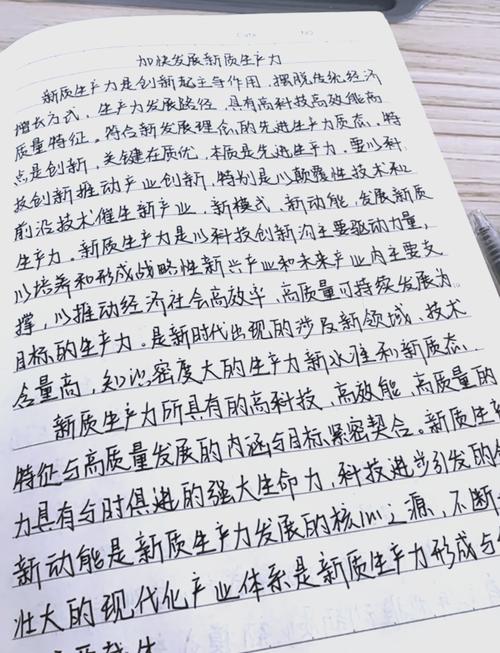 加快发展新质生产力
新质生产力是创新起主导作用，摆脱传统经济
增长方式、生产力发展路径，具有高科技高效能高
质量特征。符合新发展理念的先进生产力质态，特
点是创新，关键在质优，本质是先进生产力，要以科
技创新推动产业创新，特别是以颠覆性技术和
前沿技术催生新产业、新模式、新动能，发展新质
生产力，新质生产力是以科技创新为主要驱动力量，
以培养和形成战略性新兴产业和未来产业为主要支
撑，以推动经济社会高效率、高质量可持续发展为
目标的生产力。是新时代出现的涉及新领域、技术
含量高，知识密度大的生产力新水准和新质态、
新质生产力所具有的高科技，高效能，高质量的
特征与高质量发展的内涵与目标紧密契合。新质生
力具有与时俱进的强大生命力，科技进步引发的
新动能是新质生产力发展的核心之源，不断
壮大的现代化产业体系是新质生产力形成与